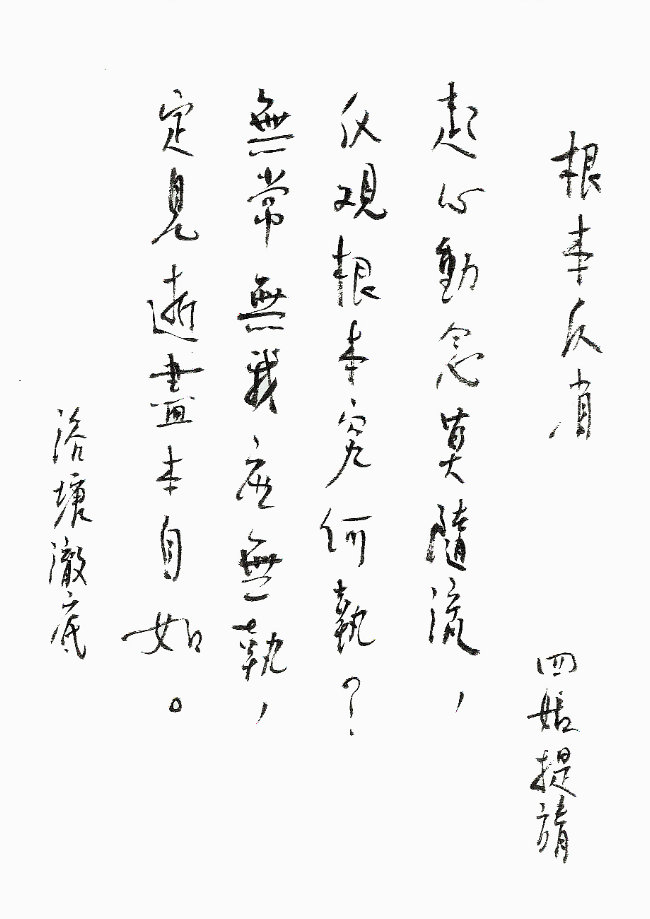 根本反省
四姐提請
起心動念莫隨流，
反观根本究何執？
無常無我应無執，
定見逝盡本自如。
浴塘澈底